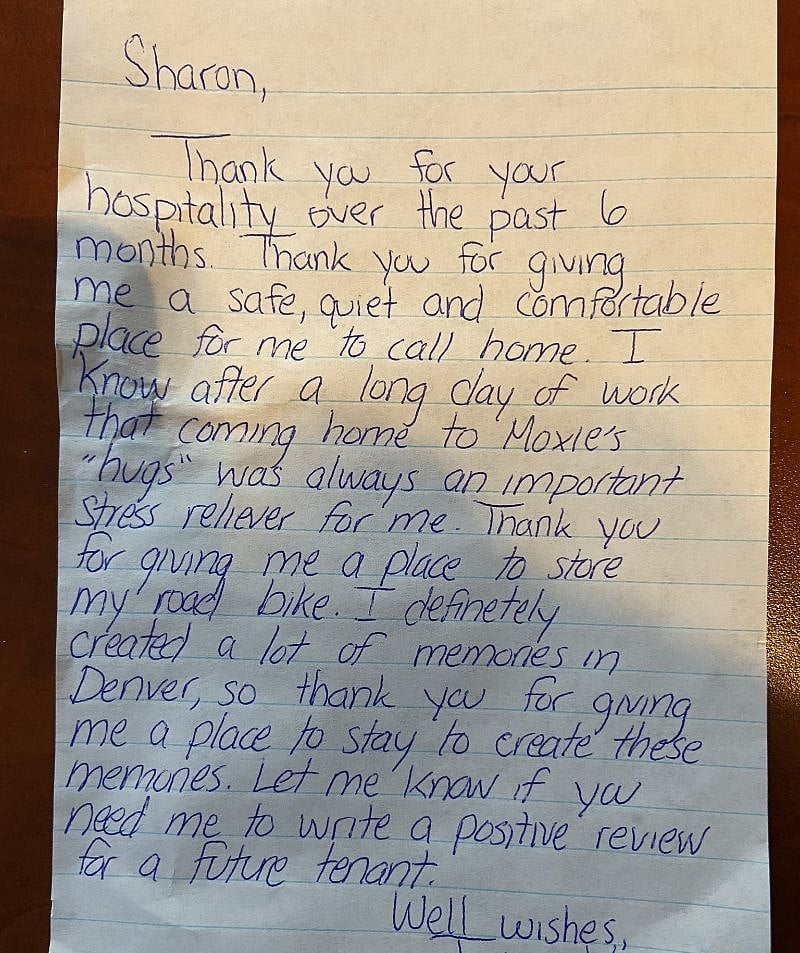 Sharon,
Thank you for your
hospitality over the past 6
months. Thank you for giving
me a safe, quiet and comfortable
place for me to call home. I
know after a long day of work
that coming home to Moxie's
"hugs" was always an important
stress reliever for me. Thank you
for giving me a place to store
my road bike. I definetely
created a lot of memories in
Denver, so thank you for giving
me a place to stay to create these
memories. Let me know if you
need me to write a positive review
for a future tenant.
Well wishes,